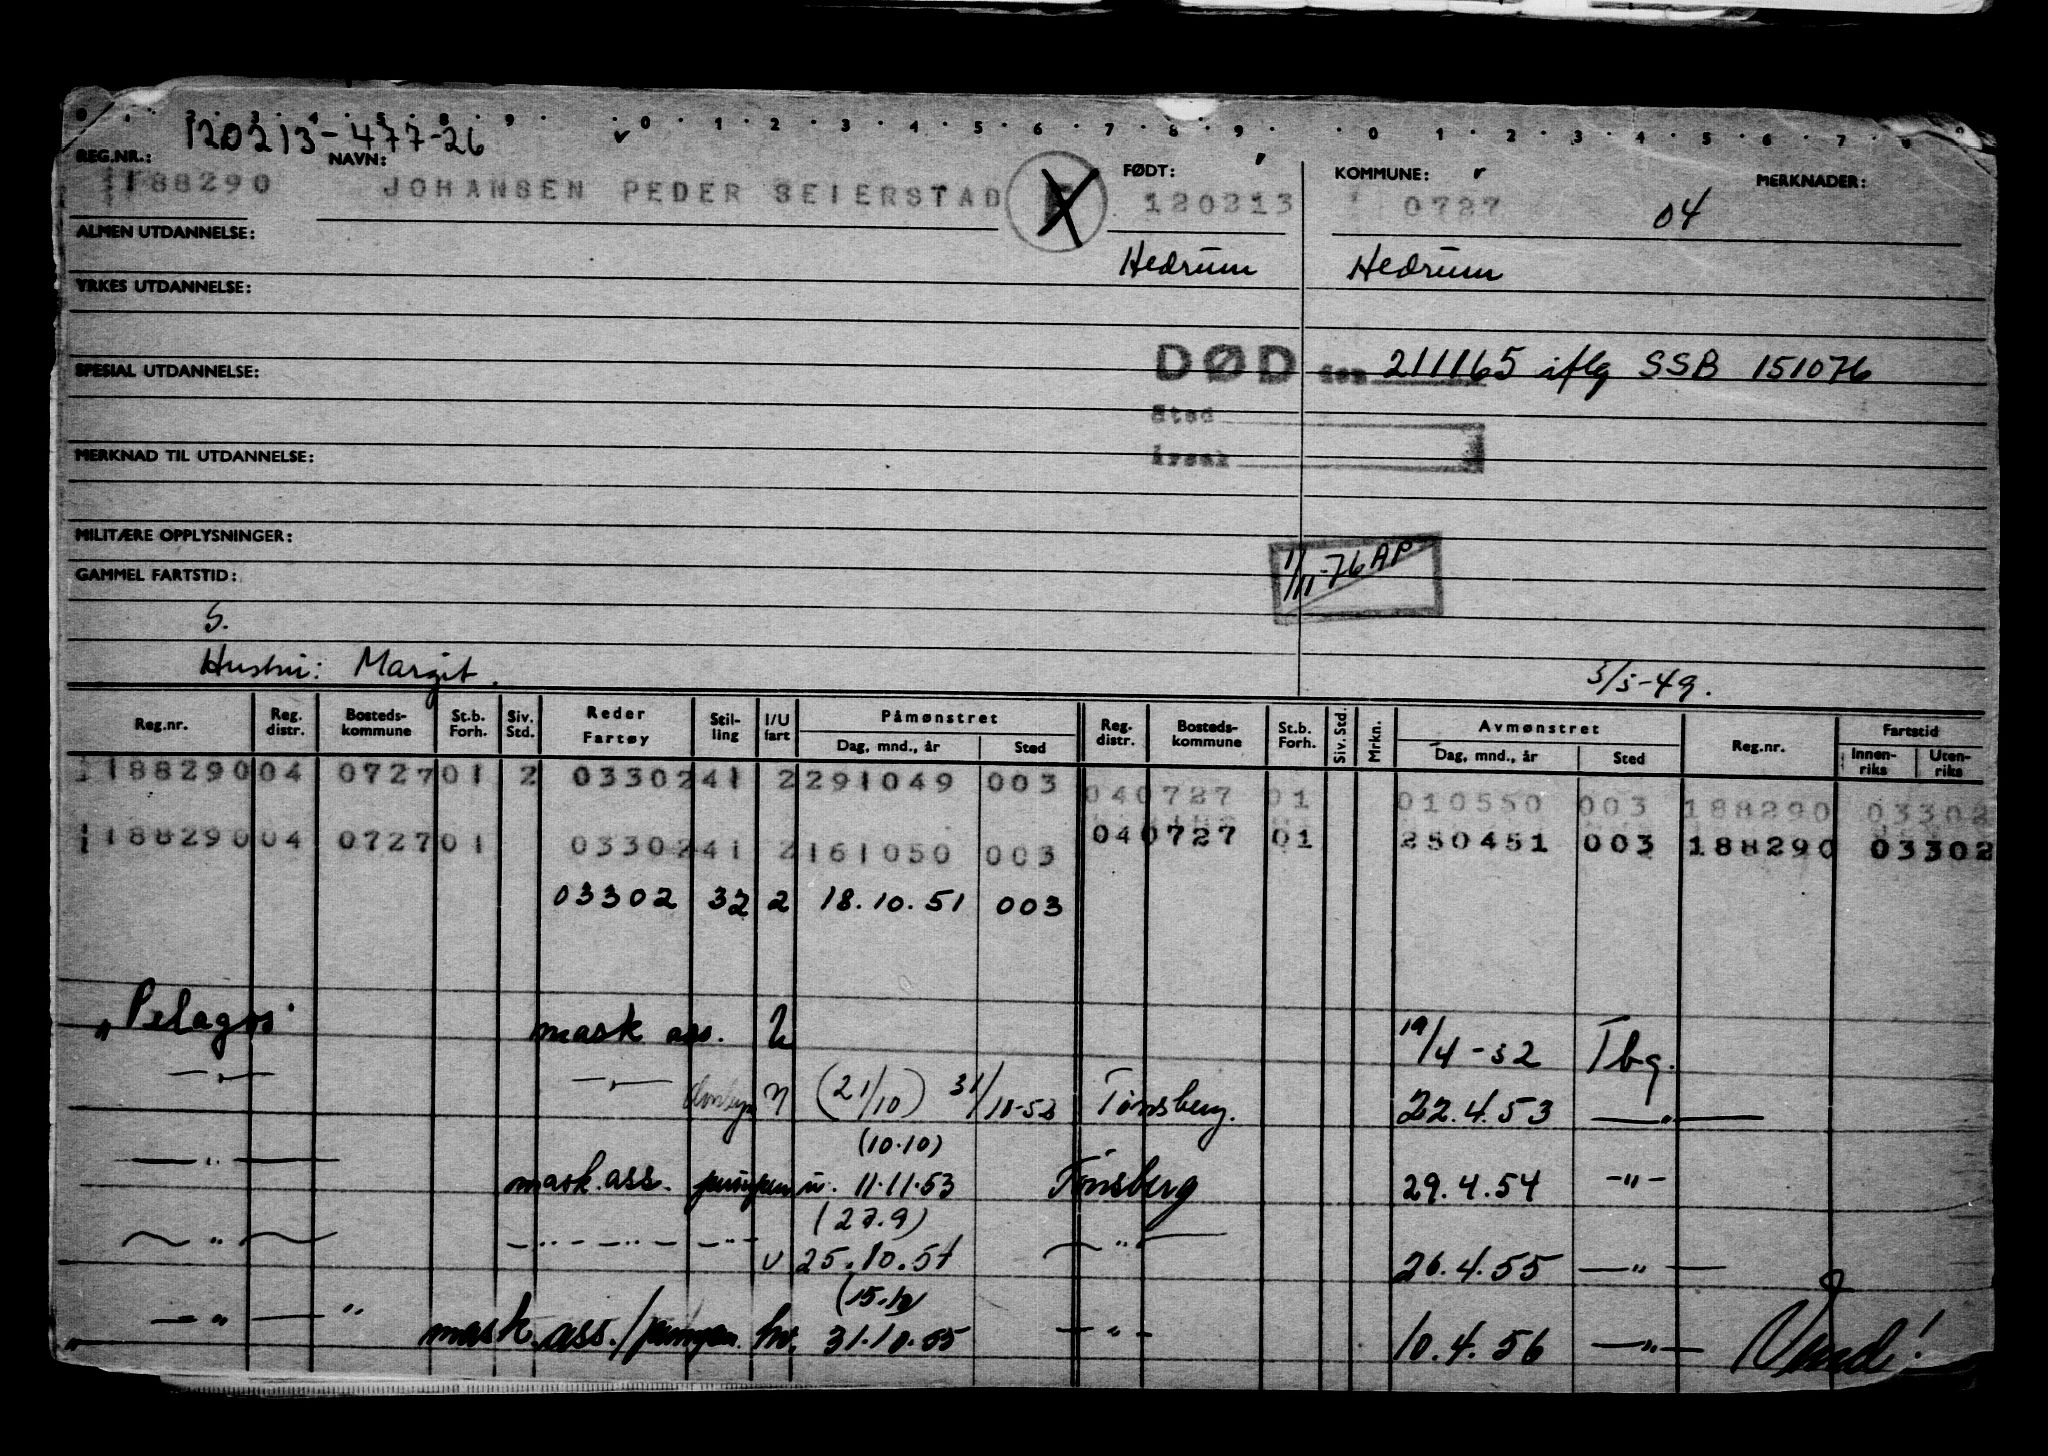 120213-477-26
0 1 2 3 4 5 6 7 8 9 0 1 2 3 4 5 6 7 8 9
REG.NR.: NAVN: FØDT: KOMMUNE: MERKNADER:
188290 JOHANSEN PEDER SEIERSTAD 120213 0727 04
ALMEN UTDANNELSE: Hedrum Hedrum
YRKES UTDANNELSE:
SPESIAL UTDANNELSE: DØD den 211165 iflg SSB 151076
Sted
Årsak
MERKNAD TIL UTDANNELSE:
MILITÆRE OPPLYSNINGER:
1/11-76 AP
GAMMEL FARTSTID:
S.
Hustru: Margit.
3/5-49.
Reg.nr. Reg. distr. Bosteds- kommune St.b. Forh. Siv. Std. Reder Fartøy Stil- ling I/U fart Påmønstret Dag, mnd., år Sted Reg. distr. Bosteds- kommune St.b. Forh. Siv. Std. Mrkn. Avmønstret Dag, mnd., år Sted Reg.nr. Fartstid Innen- riks Uten- riks
188290 04 0727 01 2 03302 41 2 291049 003 04 0727 01 010550 003 188290 03302
188290 04 0727 01 03302 41 2 161050 003 04 0727 01 250451 003 188290 03302
03302 32 2 18.10.51 003
"Pelagos" mask ass. 19/4-52 Tbg.
—"— —"— (21/10) 31/10-52 Tønsberg. 22.4.53 —"—
(10.10)
—"— mask.ass. u. 11.11.53 Tønsberg 29.4.54 -"-
(27.9)
—"— —"— —"— u 25.10.54 —"— 26.4.55 —"—
(15.10)
—"— " mask.ass./ hv. 31.10.55 —"— 10.4.56 —"—